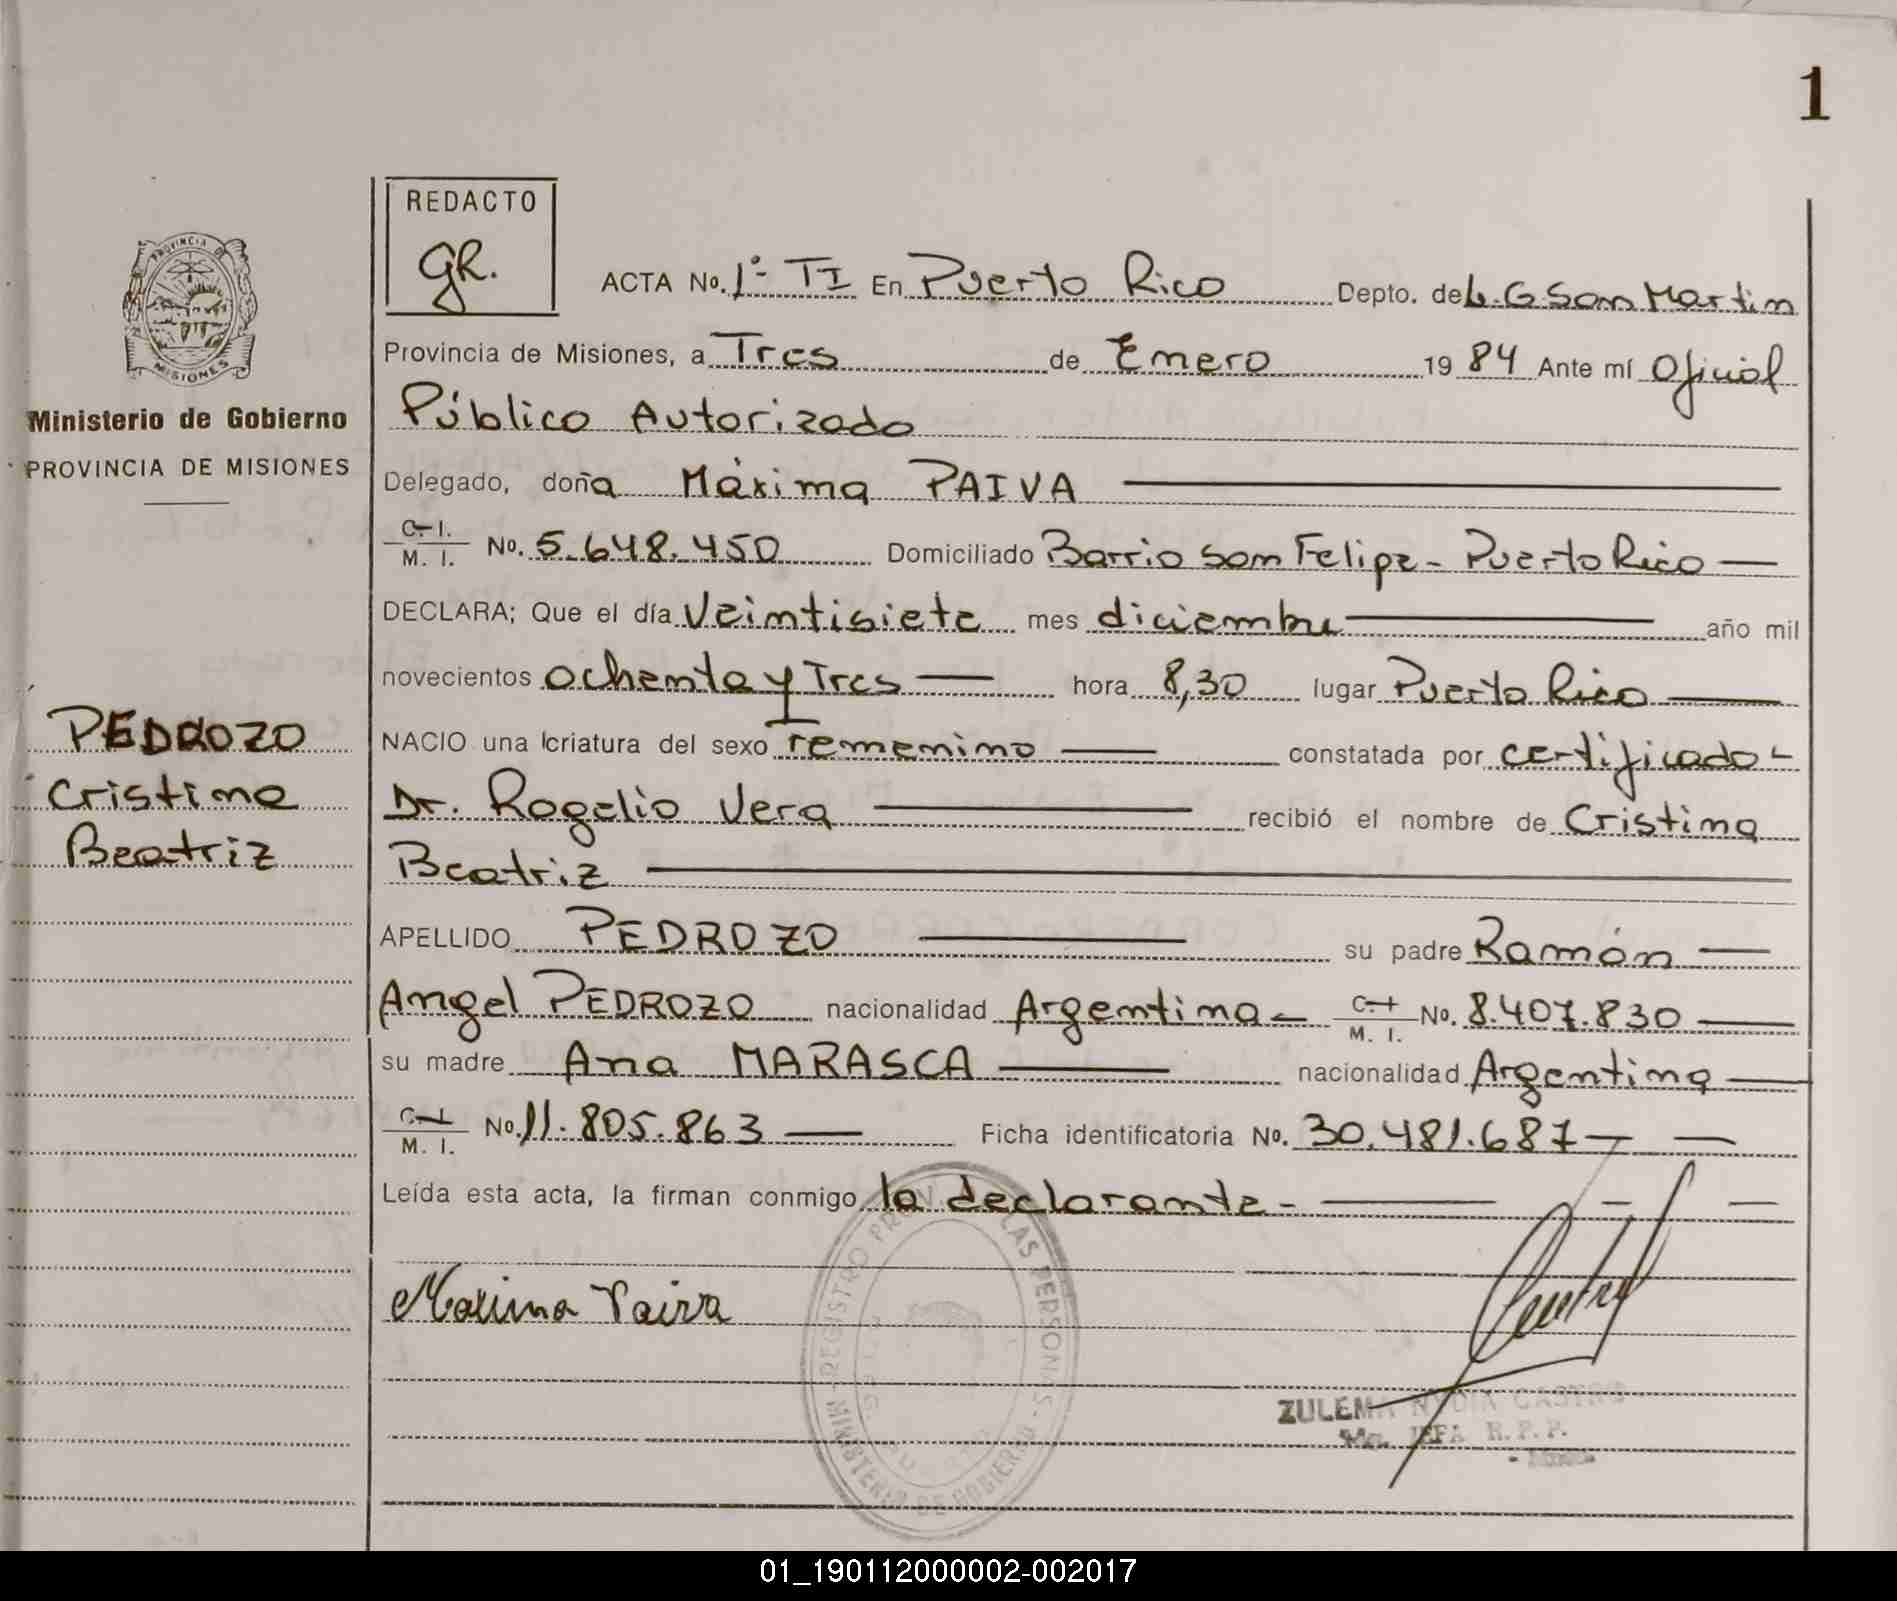 1
REDACTO
gR.
PROVINCIA DE
MISIONES
Ministerio de Gobierno
PROVINCIA DE MISIONES
PEDROZO
Cristina
Beatriz
ACTA No. 1º- TI En Puerto Rico Depto. de L. G San Martin
Provincia de Misiones, a Tres de Enero 1984 Ante mí Oficial
Público Autorizado
Delegado, doña Máxima PAIVA
C. I.
M. I. No. 5.648.450 Domiciliado Barrio San Felipe - Puerto Rico
DECLARA; Que el día Veintisiete mes diciembre año mil
novecientos ochenta y Tres hora 8,30 lugar Puerto Rico
NACIO una criatura del sexo Femenino constatada por certificado -
Dr. Rogelio Vera recibió el nombre de Cristina
Beatriz
APELLIDO PEDROZO su padre Ramón
Angel PEDROZO nacionalidad Argentina - C. I.
M. I. No. 8.407.830
su madre Ana MARASCA nacionalidad Argentina
C. I.
M. I. No. 11.805.863 Ficha identificatoria No. 30.481.687
Leída esta acta, la firman conmigo la declarante -
Maxima Paiva
REGISTRO PROV. LAS PERSONAS - MINISTERIO DE GOBIERNO
ZULEMA NYDIA CASTRO
JEFA R. P. P.
01_190112000002-002017